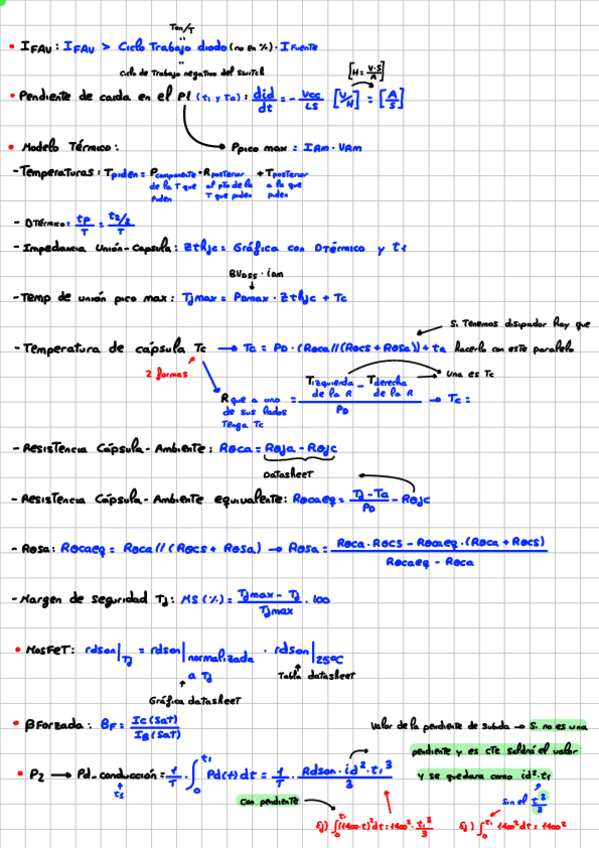 Ton/T
"
• IFAV: IFAV > Ciclo Trabajo diodo (no en %) · IFuente
"
ciclo de Trabajo negativo del Switch
[H = V·S/A]
• Pendiente de caida en el P1 (t1 y ta): did/dt = - Vcc/LS [V/H] = [A/S]
• Modelo Térmico: Ppico max = IAM · VAM
- Temperaturas: Tpiden = Pcomponente · Rposterior + Tposterior
de la T que al pto de la a la que
piden T que piden piden
- DTérmico: tp/T = t2/2/T
- Impedancia Unión-Capsula: Zthjc = Gráfica con DTérmico y t1
BVDSS · iDM
- Temp de unión pico max: Tjmax = PDmax · Zthjc + Tc
Si Tenemos disipador hay que
- Temperatura de cápsula Tc → Tc = PD · (Roca//(Rocs + Rosa)) + ta hacerlo con este paralelo
2 formas
Una es Tc
R que a uno de sus lados Tenga Tc = Tizquierda de la R - Tderecha de la R / PD → Tc =
- Resistencia Cápsula-Ambiente: Roca = Roja - Rojc
Datasheet
- Resistencia Cápsula-Ambiente equivalente: Rocaeq = Tj - Ta/PD - Rojc
- Rosa: Rocaeq = Roca // (Rocs + Rosa) → Rosa = Roca · Rocs - Rocaeq · (Roca + Rocs) / Rocaeq - Roca
- Margen de seguridad Tj: MS (%) = Tjmax - Tj / Tjmax · 100
• MosFeT: rdson|Tj = rdson|normalizada a Tj · rdson|25ºC
Tabla datasheet
Gráfica datasheet
• βForzada: βF = Ic(Sat)/IB(Sat)
Valor de la pendiente de subida → Si no es una
pendiente y es cte saldrá el valor
• P2 → Pd_conducción = 1/T · ∫0 t1 Pd(t) dt = 1/T · Rdson · id² · t1³/3
y se quedaría como id² · t1
Con pendiente
sin el t³/3
Ej) ∫0 t1 (1400·t)² dt = 1400² · t1³/3
Ej) ∫0 t1 1400² dt = 1400²